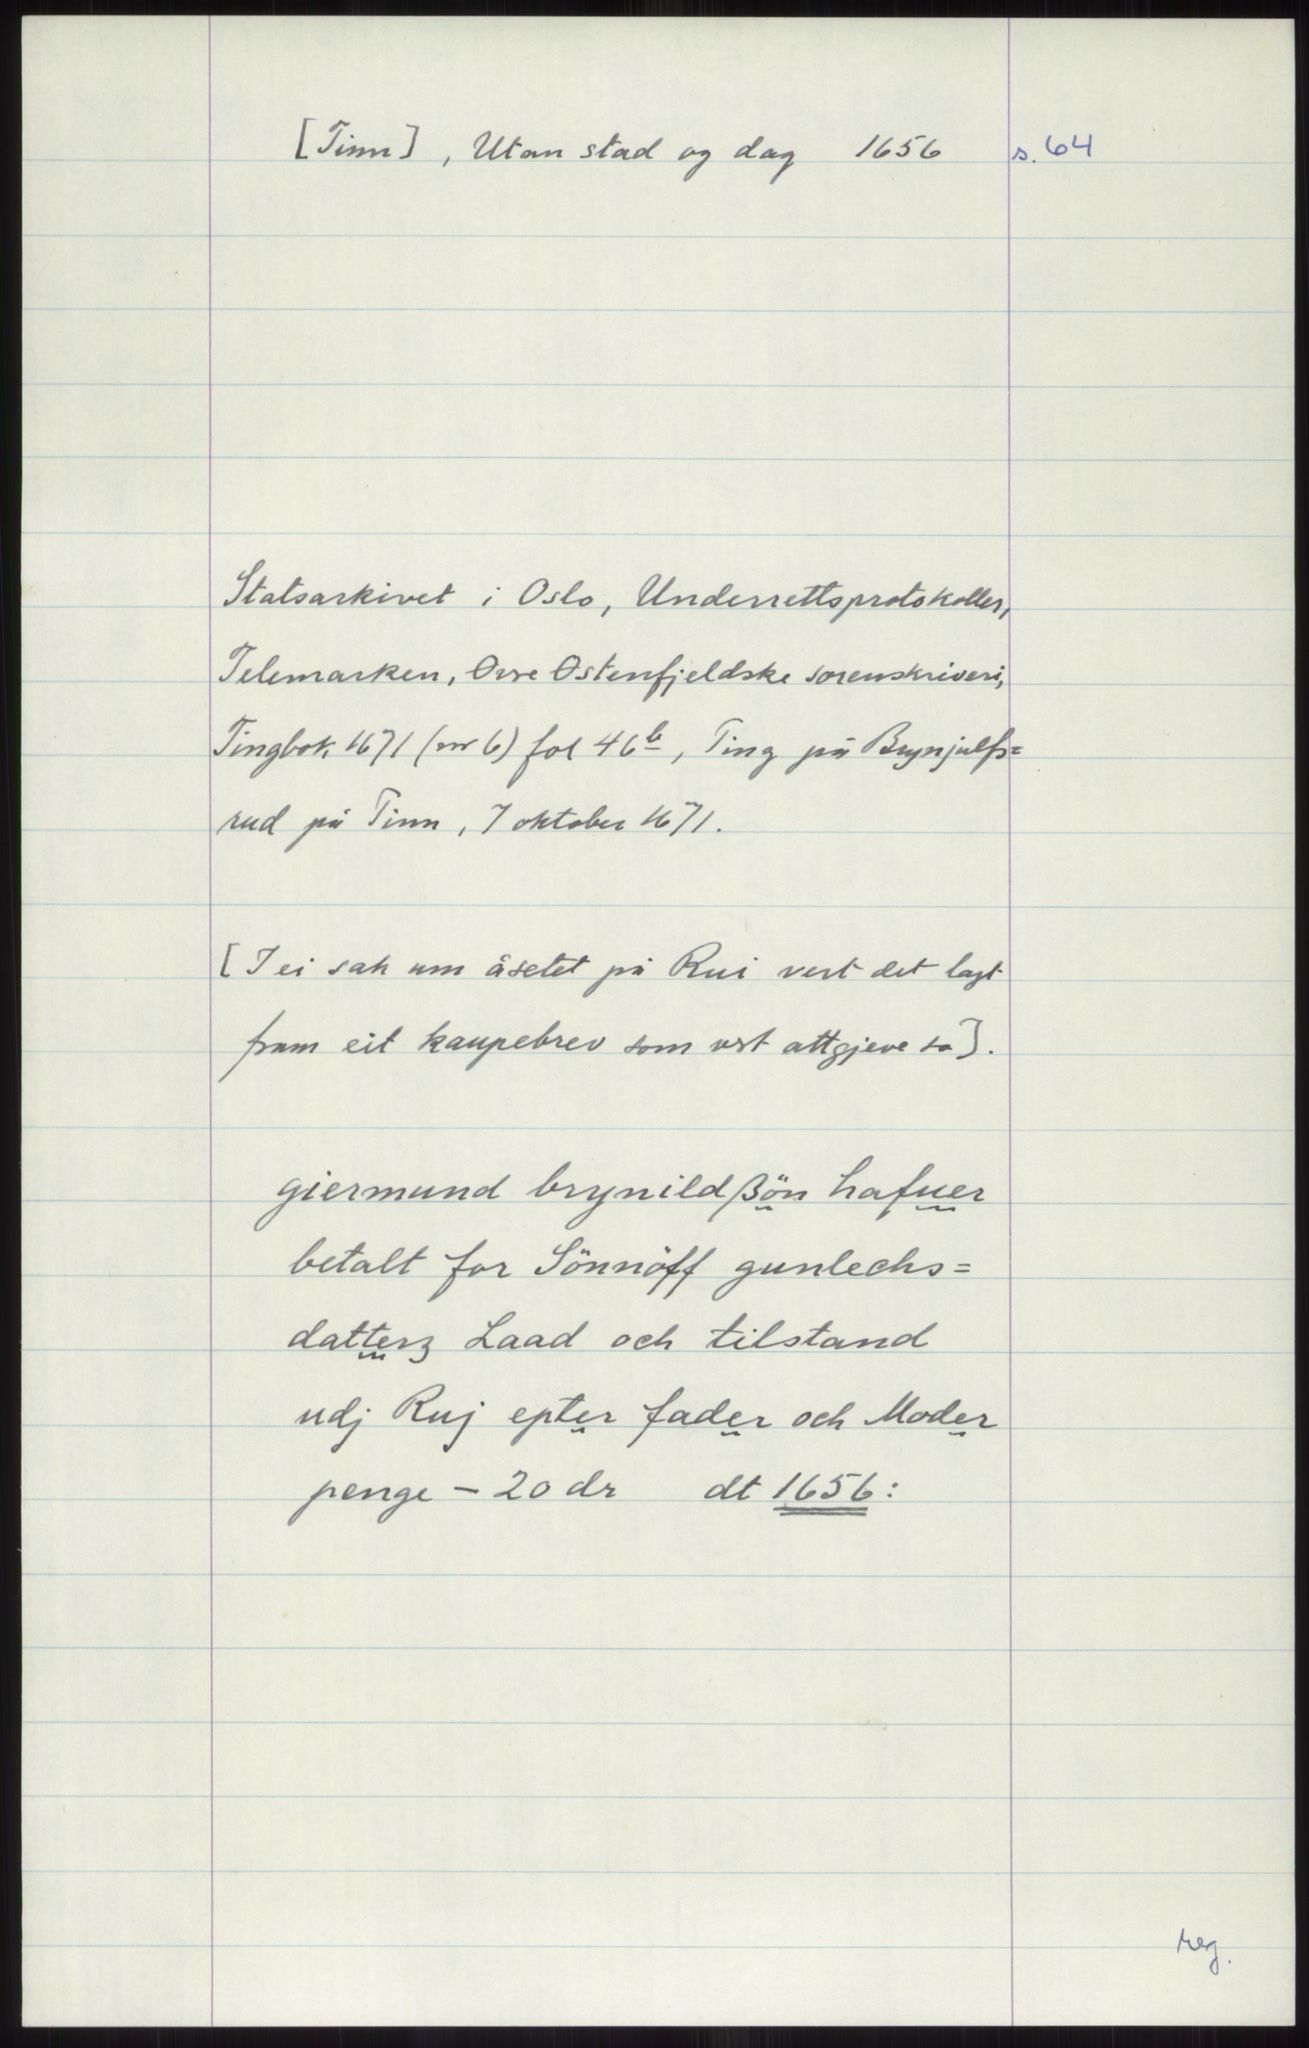 [Tinn], Utan stad og dag 1656 s. 64
Statsarkivet i Oslo, Underrettsprotokoller,
Telemarken, Øvre Østenfjeldske sorenskriveri,
Tingbok 1671 (nr 6) fol 46b, Ting på Brynjulfs=
rud på Tinn, 7 oktober 1671.
[I ei sak um åsetet på Rui vert det lagt
fram eit kaupebrev som vert attgjeve so].
giermund brynildßön hafuer
betalt for Sönnöff gunlechs=
datterz Laad och tilstand
udj Ruj epter fader och Moder
penge – 20 dr dt 1656:
reg.